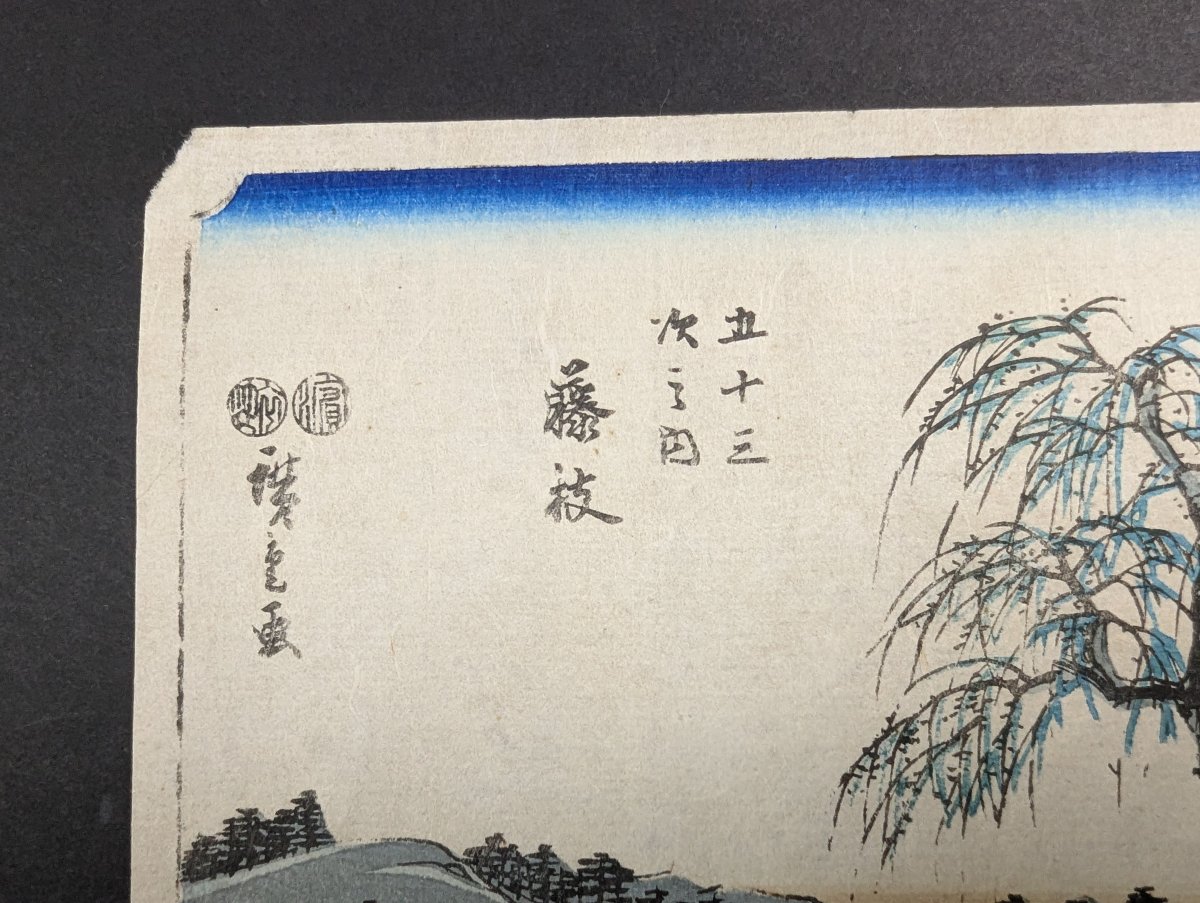 五十三
次之図
藤枝
濱
廣重画